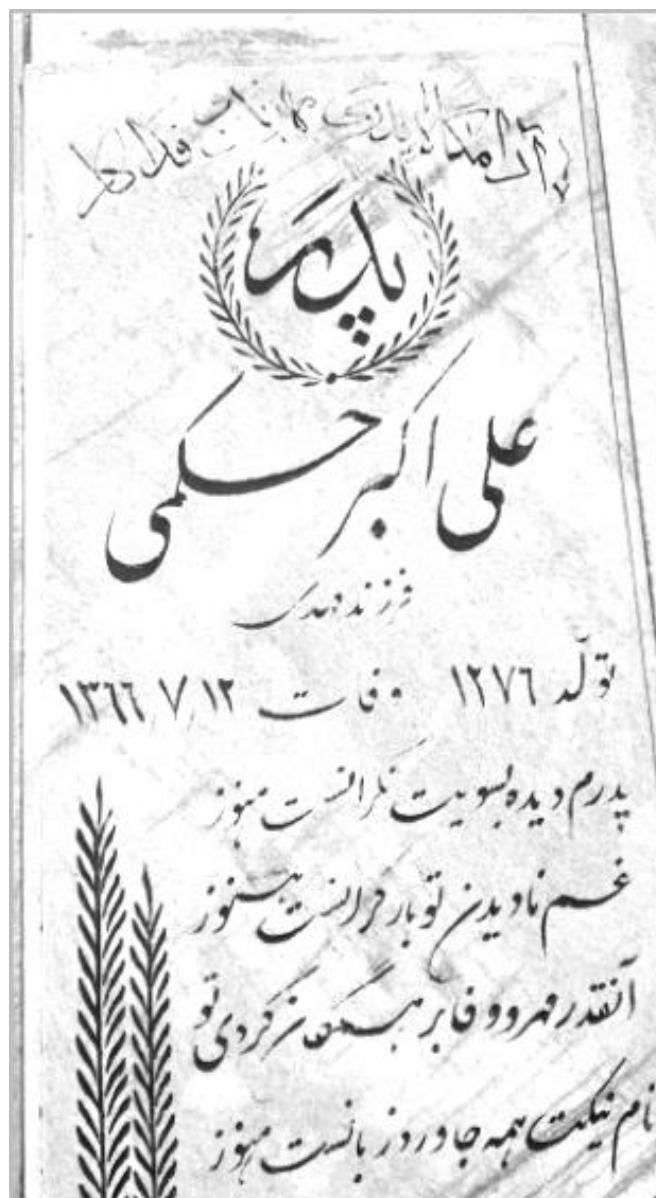 آرامگاه پدری مهربان فداکار
پدر
علی اکبر حکمی
فرزند مهدی
تولد ۱۲۷۶ وفات ۱۳۶۶/۷/۱۲
پدرم دیده بسویت نگرانست هنوز
غم نادیدن تو بار گرانست هنوز
آنقدر مهر و وفا بر همگان کردی تو
نام نیکت همه جا ورد زبانست هنوز